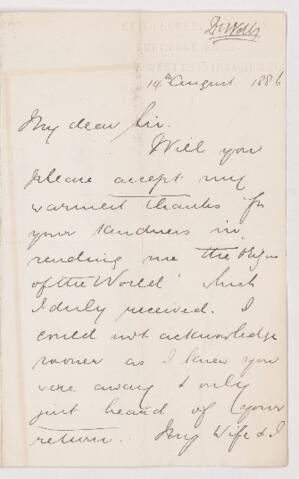 Dr Wells
14th August 1886
My dear Sir.
Will you
please accept my
warmest thanks for
your kindness in
sending me 'the Origin
of the World' which
I duly received. I
could not acknowledge
sooner as I knew you
were away & only
just heard of your
return. My Wife & I